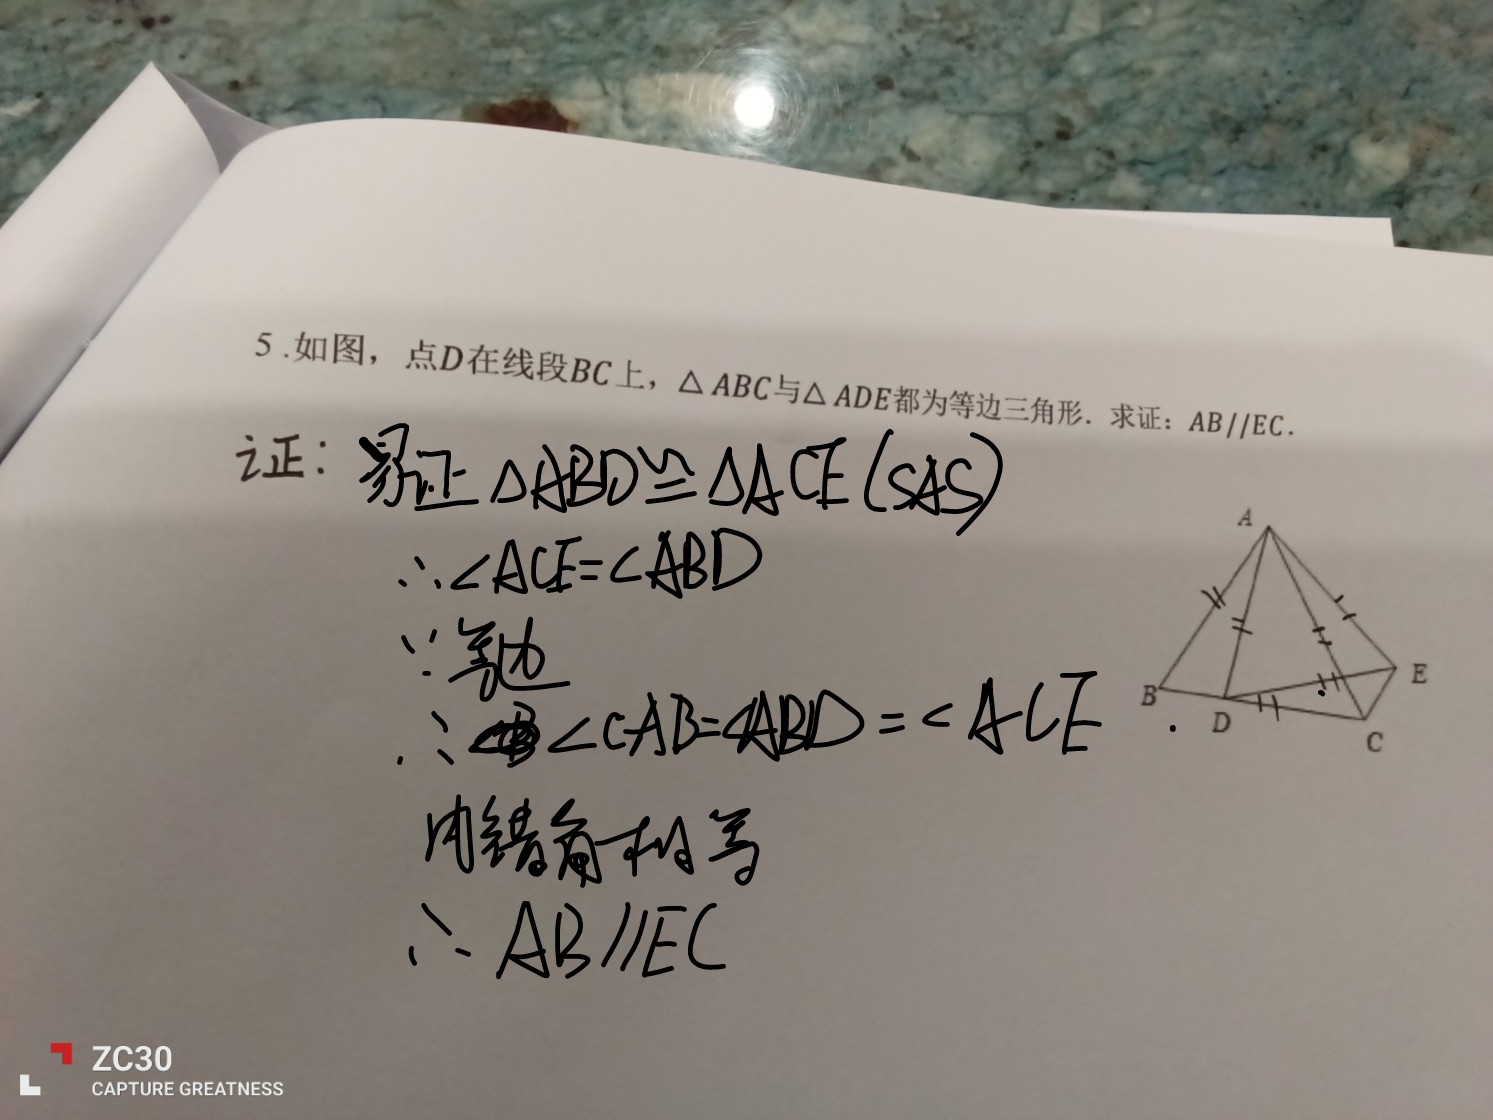 5 .如图，点D在线段BC上，△ ABC与△ ADE都为等边三角形．求证：AB//EC.
证: 易证 △ABD≌△ACE(SAS)
∴∠ACE=∠ABD
∵等边
∴ ∠CAB=∠ABD=∠ACE
内错角相等
∴ AB//EC
A
B
D
E
C
ZC30
CAPTURE GREATNESS